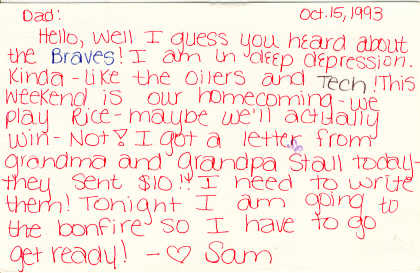 Dad: Oct. 15, 1993
Hello, well I guess you heard about
the Braves! I am in deep depression.
Kinda-like the oilers and Tech! This
weekend is our homecoming-we
play Rice-maybe we'll actually
win-Not! I got a letter from
grandma and Grandpa Stall today-
they sent $10!! I need to write
them! Tonight I am going to
the bonfire so I have to go
get ready! - ♡ Sam